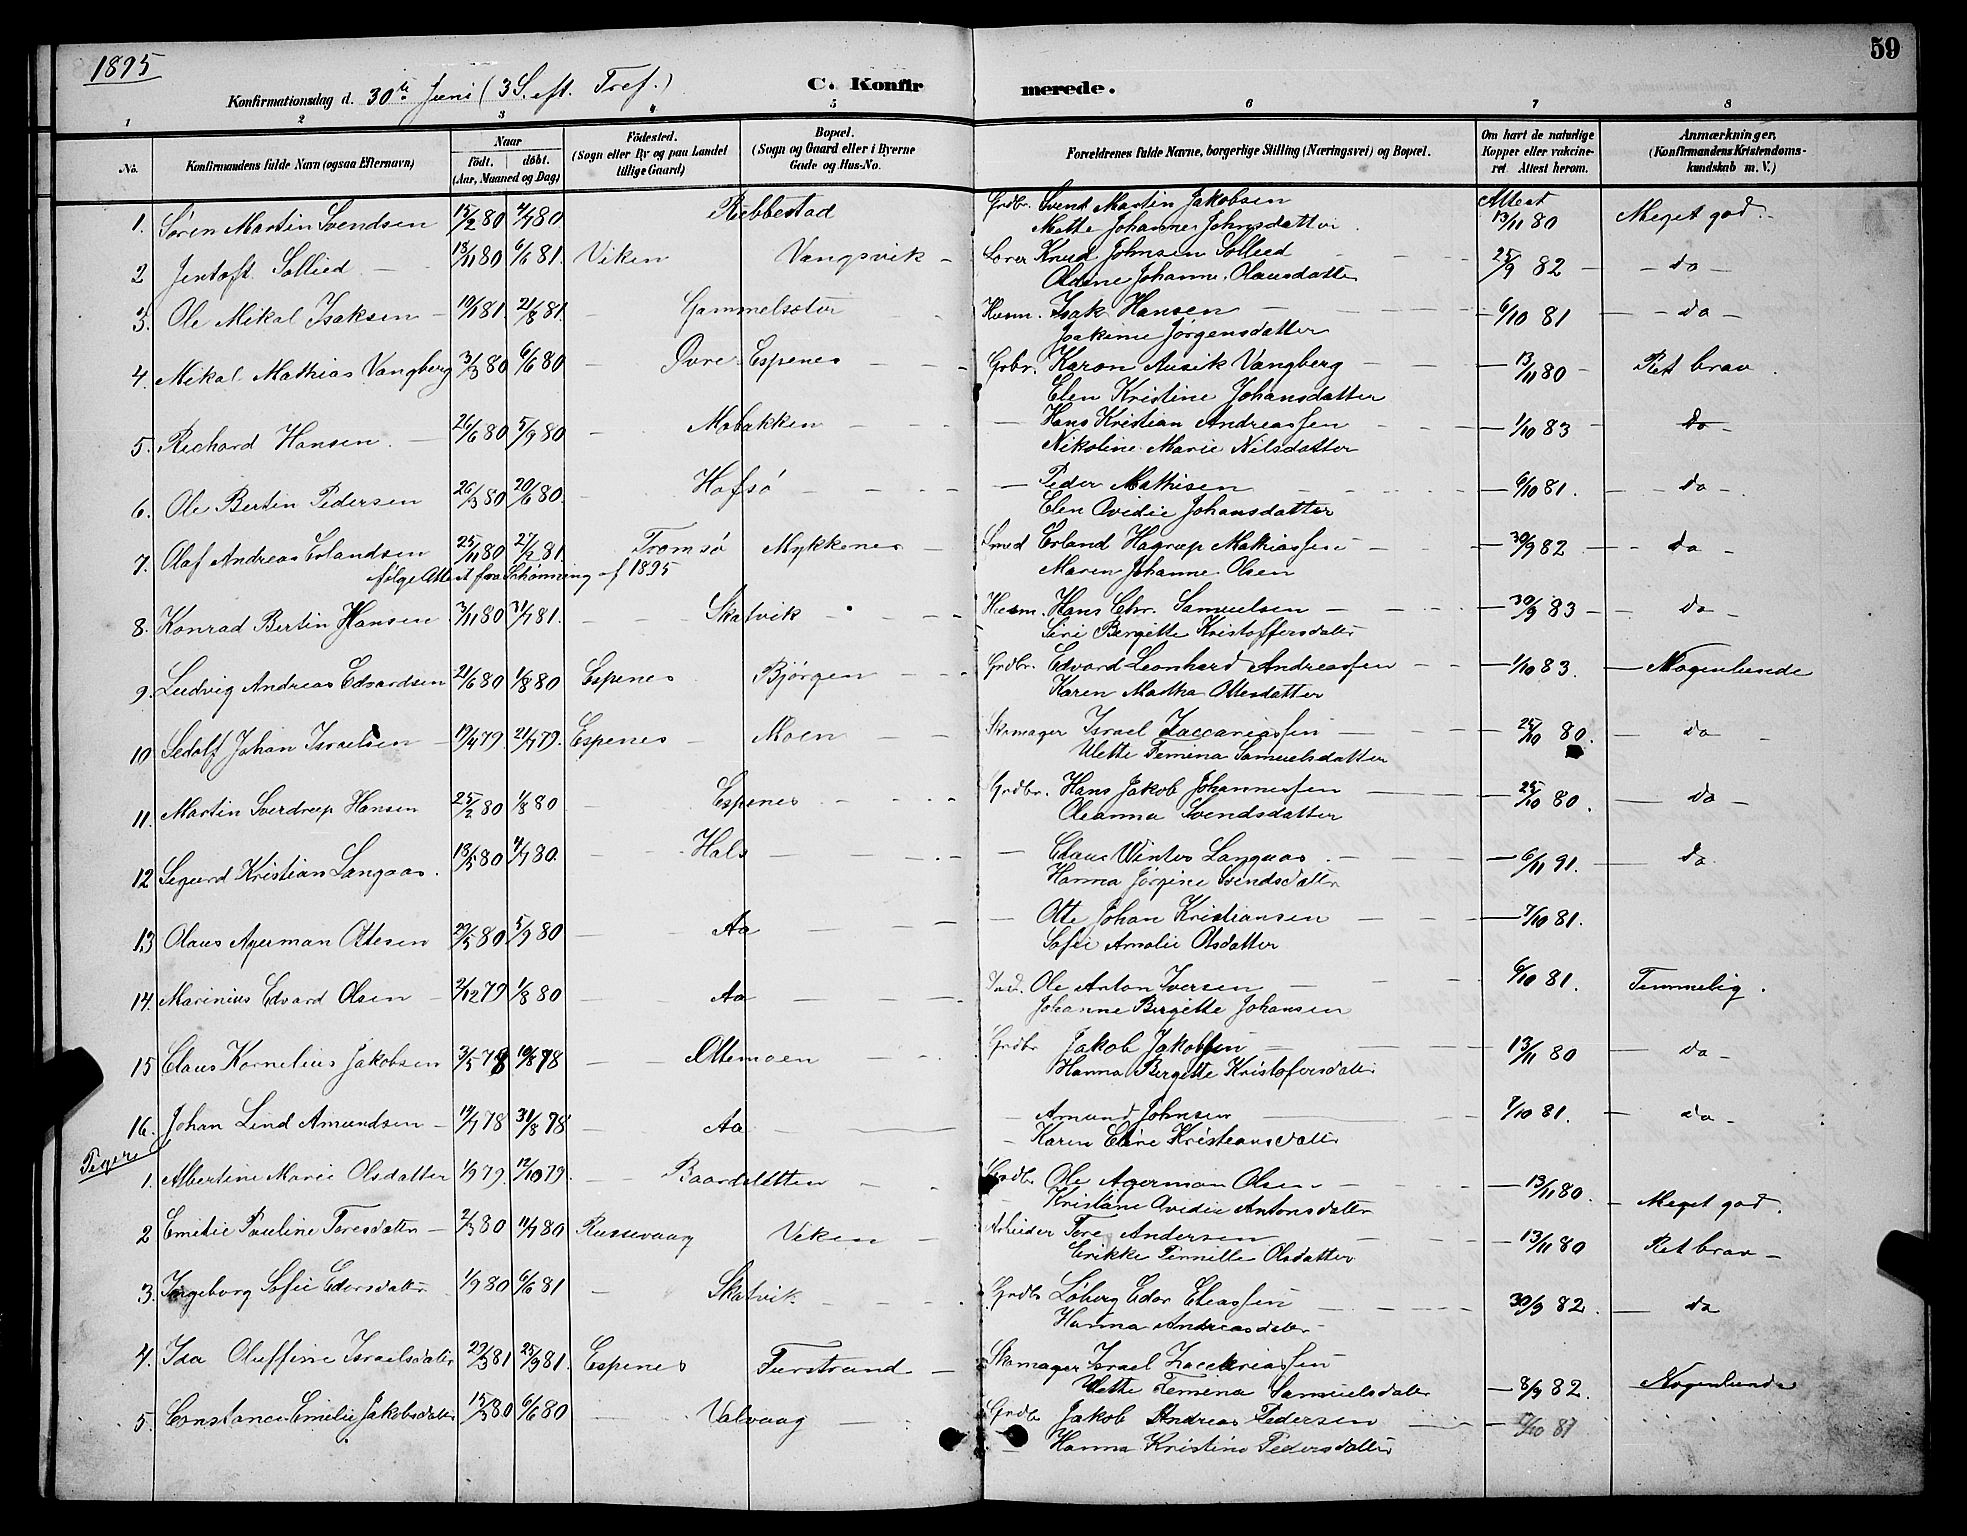 1895
59
Konfirmationsdag d. 30te Juni (3 S. eft. Tref.)
C. Konfirmerede.
1 2 3 4 5 6 7 8
No.
Konfirmandens fulde Navn (ogsaa Efternavn)
Naar
født. døbt.
(Aar, Maaned og Dag)
Fødested.
(Sogn eller By og paa Landet
tillige Gaard)
Bopæl.
(Sogn og Gaard eller i Byerne
Gade og Hus-No.
Forældrenes fulde Navne, borgerlige Stilling (Næringsvei) og Bopæl.
Om havt de naturlige
Kopper eller vakcine-
ret Attest herom.
Anmærkninger.
(Konfirmandens Kristendoms-
kundskab m. V.)
1. Søren Martin Svendsen 15/2 80 4/7 80 Rebbestad Grdbr. Svend Martin Jakobsen Attest 13/11 80 Meget god.
Mette Johanne Johnsdatter
2 Jentoft Sollied 18/11 80 6/6 81. Viken Vangsvik Lærer Knud Johnsen Sollied 25/9 82 do
Oldine Johanne Olausdatter
3. Ole Mikal Isaksen 19/1 81. 21/8 81. Gammelsæter Husm. Isak Hansen 6/10 81 do
Joakime Jørgensdatter
4. Mikal Mathias Vangberg 3/3 80 6/6 80 Øvre Espenes Grbr. Karon Ausik Vangberg 13/11 80 Ret brav.
Elen Kristine Johansdatter
5. Richard Hansen. 26/6 80 5/9 80 Mobakken Hans Kristian Andreassen 1/10 83 Do
Nikoline Marie Nilsdatter
6. Ole Bertin Pedersen 26/3 80 20/6 80. Hofsø Peder Mathisen 6/10 81. do
Elen Ovidie Johansdatter
7. Olaf Andreas Erlandsen 25/11 80 27/2 81. Tromsø Mykkenes Smed Erland Hagrup Mathiassen 30/9 82 do
følge Attest fra Schønning af 1895 Maren Johanne Olsen
8. Konrad Bertin Hansen 3/11 80 31/7 81. Skatvik Husm. Hans Chr. Samuelsen 30/9 83 do
Sini Bergitte Kristoffersdatter
9. Ludvig Andreas Edvardsen 21/6 80 1/8 80 Espenes Bjørgen Grdbr. Edvard Leonhard Andreassen 1/10 83. Nogenlunde
Karen Martha Ottesdatter
10 Sedolf Johan Israelsen 19/4 79 21/7 79. Espenes Moen Skomager Israel Zaccariassen 25/10 80. do
Ulette Femina Samuelsdatter
11. Martin Sverdrup Hansen 25/2 80 1/8 80 Espenes Grdbr. Hans Jakob Johannessen 25/10 80. do
Oleanna Svendsdatter
12 Sigurd Kristian Langaas. 18/5 80 4/7 80. Hals Claus Winter Langaas 6/11 91. do.
Hanna Jørgine Svendsdatter
13 Olaus Agerman Ottesen 29/5 80 5/9 80 Aa Otte Johan Kristiansen 7/10 81.
Sofie Amalie Olsdatter
14. Marinius Edvard Olsen 2/12 79 1/8 80 Aa Ind. Ole Anton Iversen 6/10 81. Temmelig.
Johanne Birgitte Johansen
15 Claus Kornelius Jakobsen 3/5 78 18/8 78 Ottemoen Grdbr Jakob Jakobsen 13/11 80 do
Hanna Bergitte Kristofersdatter
16. Johan Lind Amundsen 19/7 78 31/8 78 Aa Amund Johnsen 7/10 81. do
Karen Eline Kristiansdatter
Piger
1. Albertine Marie Olsdatter 1/9 79. 12/10 79. Baardsletten Grdbr Ole Agerman Olsen 13/11 80. Meget god.
Kristiane Ovidie Antonsdatter
2 Emilie Pauline Toresdatter 2/3 80 11/7 80 Russevaag Viken Arbeider Tore Andersen 13/11 80 Ret brav
Erikke Pernille Olsdatter
3. Ingeborg Sofie Edorsdatter 1/9 80 6/6 81 Skatvik Grdbr Løberg Edor Eliassen 30/9 82. do
Hanna Andreasdatter
4. Ida Oluffine Israelsdatter 29/3 81 25/9 81. Espenes Furstrand Skomager Israel Zackriassen
Ulette Femina Samuelsdatter 8/9 82. Nogenlunde
5. Constance Emilie Jakobsdatter 15/3 80 6/6 80 Valvaag Grdbr Jakob Andreas Pedersen 7/10 81
Hanna Kristine Pedersdatter